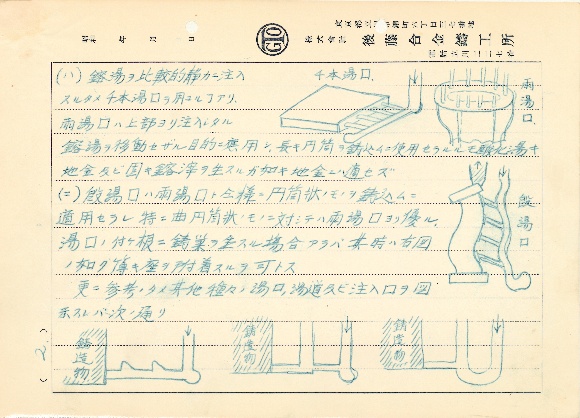 株式会社 後藤合金鋳工所
昭和 年 月 日
(ハ) 鎔湯ヲ比較的静カニ注入
スルタメ千本湯口ヲ用ユル了アリ.
千本湯口.
雨湯口.
雨湯口ハ上部ヨリ注入シタル
鎔湯ヲ移動セザル目的ニ應用シ、長キ円筒ヲ鋳込ムニ使用セラルルモ酸化シ易キ
地金及ビ固キ鎔滓ヲ生スルガ如キ地金ニハ適セズ
(ニ) 段湯口ハ雨湯口ト仝様ニ円筒状ノモノヲ鋳込ムニ
適用セラレ特ニ曲円筒状ノモノニ対シテハ雨湯口ヨリ優ル.
段湯口
湯口ノ付ケ根ニ鋳巣ヲ生スル場合アラバ其時ハ右図
ノ如ク傾キ座ヲ附着スルヲ可トス
更ニ参考ノタメ其他種々ノ湯口,湯道及ビ注入口ヲ図
示スレバ次ノ通リ
鋳造物
鋳造物
鋳造物
( 2. )